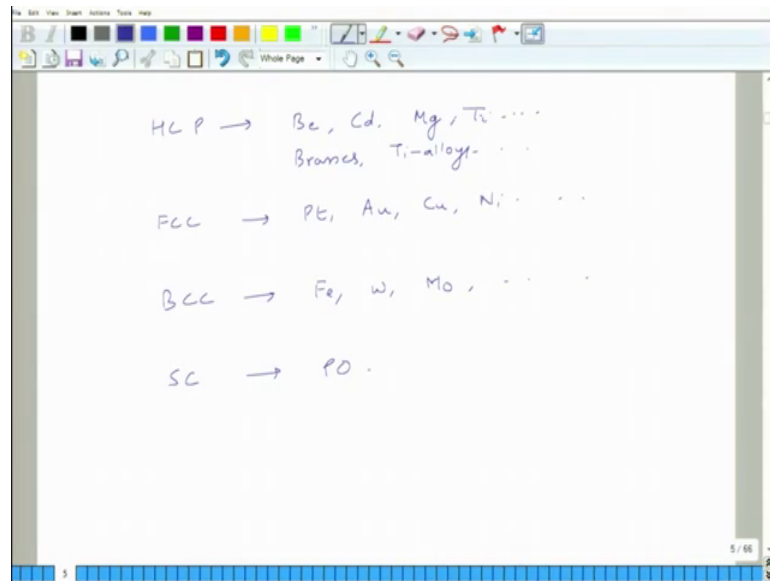 File Edit View Insert Actions Tools Help
B I
Whole Page
HCP → Be, Cd. Mg, Ti ....
Brasses, Ti-alloys- . .
FCC → Pt, Au, Cu, Ni . . .
BCC → Fe, W, Mo, . . .
SC → PO .
5 / 66
5